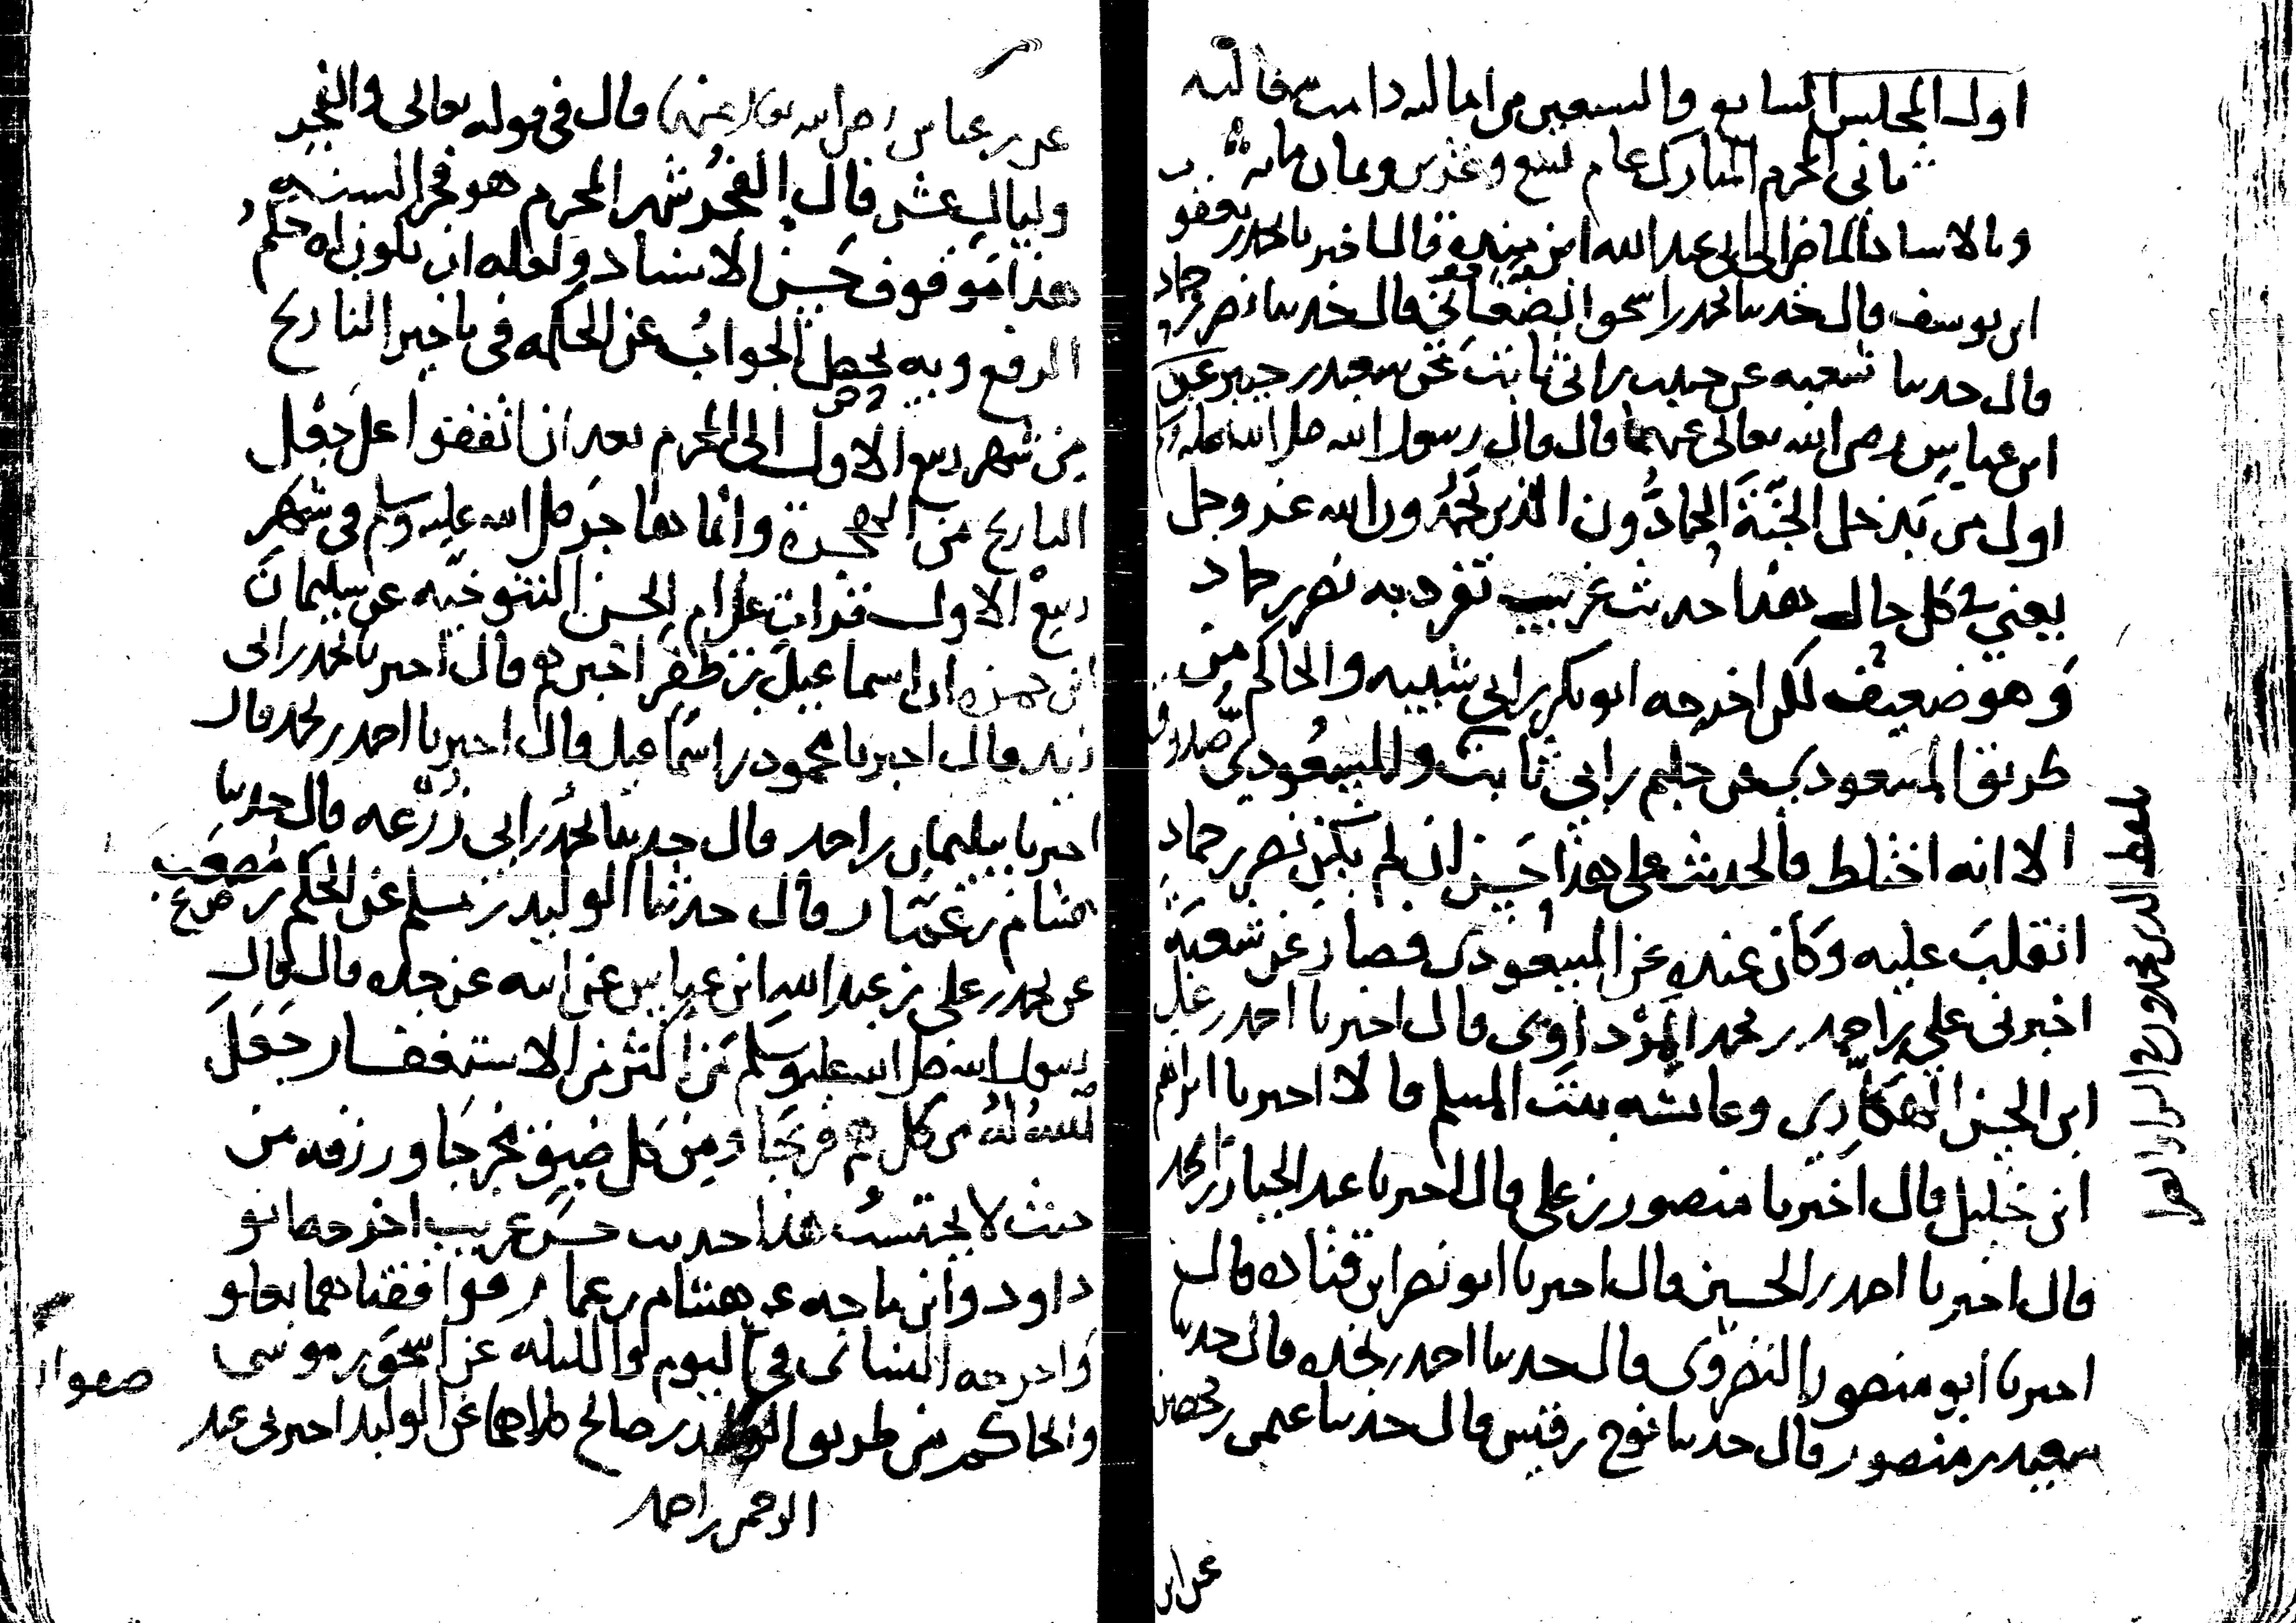 اول المجلس السابع والتسعين من اماليه دامت فضائله
ثاني المحرم المبارك عام تسع وعشرين وثمان مائة
وبالاسناد الماضي الى ابي عبد الله ابن منده قال اخبرنا محمد بن يعقوب
ابن يوسف قال حدثنا محمد بن اسحق الصغاني قال حدثنا نصر بن حماد
قال حدثنا شعبة عن حبيب بن ابي ثابت عن سعيد بن جبير عن
ابن عباس رضي الله تعالى عنهما قال قال رسول الله صلى الله عليه وسلم
اول من يدخل الجنة الحمادون الذين يحمدون الله عز وجل
يعني في كل حال هذا حديث غريب تفرد به نصر بن حماد
وهو ضعيف لكن اخرجه ابو بكر بن ابي شيبه والحاكم من
طريق المسعودي عن حبيب بن ابي ثابت والمسعودي صدوق
الا انه اختلط فالحديث على هذا حسن ان لم يكن نصر بن حماد
انقلب عليه وكان عنده عن المسعودي فصار عن شعبة
اخبرني علي بن احمد بن محمد المرداوي قال اخبرنا احمد بن علي
ابن الحسن الهكاري وعائشه بنت المسلم قالا اخبرنا ابراهيم
ابن خليل قال اخبرنا منصور بن علي قال اخبرنا عبد الجبار بن محمد
قال اخبرنا احمد بن الحسين قال اخبرنا ابو نصر ابن قتاده قال
اخبرنا ابو منصور النضروي قال حدثنا احمد بن نجده قال حدثنا
سعيد بن منصور قال حدثنا نوح بن قيس قال حدثنا عثمان بن محصن
عن ابن
عن بن عباس رضي الله تعالى عنهما قال في قوله تعالى والفجر
وليال عشر قال الفجر شهر المحرم هو فجر السنه
هذا موقوف حسن الاسناد ولعله ان يكون له حكم
الرفع وبه يحصل الجواب عن الحكمه في تاخير التاريخ
من شهر ربيع الاول الى المحرم بعد ان اتفقوا على جعل
التاريخ من الهجرة وانما هاجر صلى الله عليه وسلم في شهر
ربيع الاول قرات على ام الحسن التنوخيه عن سليمان
ابن حمزه ان اسماعيل بن ظفر اخبرهم قال اخبرنا محمد بن ابي
زيد قال اخبرنا محمود بن اسماعيل قال اخبرنا احمد بن محمد قال
اخبرنا سليمان بن احمد قال حدثنا محمد بن ابي زرعه قال حدثنا
هشام بن عمار قال حدثنا الوليد بن مسلم عن الحكم بن مصعب
عن محمد بن علي بن عبد الله ابن عباس عن ابيه عن جده قال قال
رسول الله صلى الله عليه وسلم من اكثر من الاستغفار جعل
الله له من كل هم فرجا ومن كل ضيق مخرجا ورزقه من
حيث لا يحتسب هذا حديث حسن غريب اخرجه ابو
داود وابن ماجه عن هشام بن عمار فوافقناهما بعلو
واخرجه النسائي في اليوم والليله عن اسحق بن موسى
والحاكم من طريق بن صالح كلاهما عن الوليد اخبرني عبد
الرحمن بن احمد